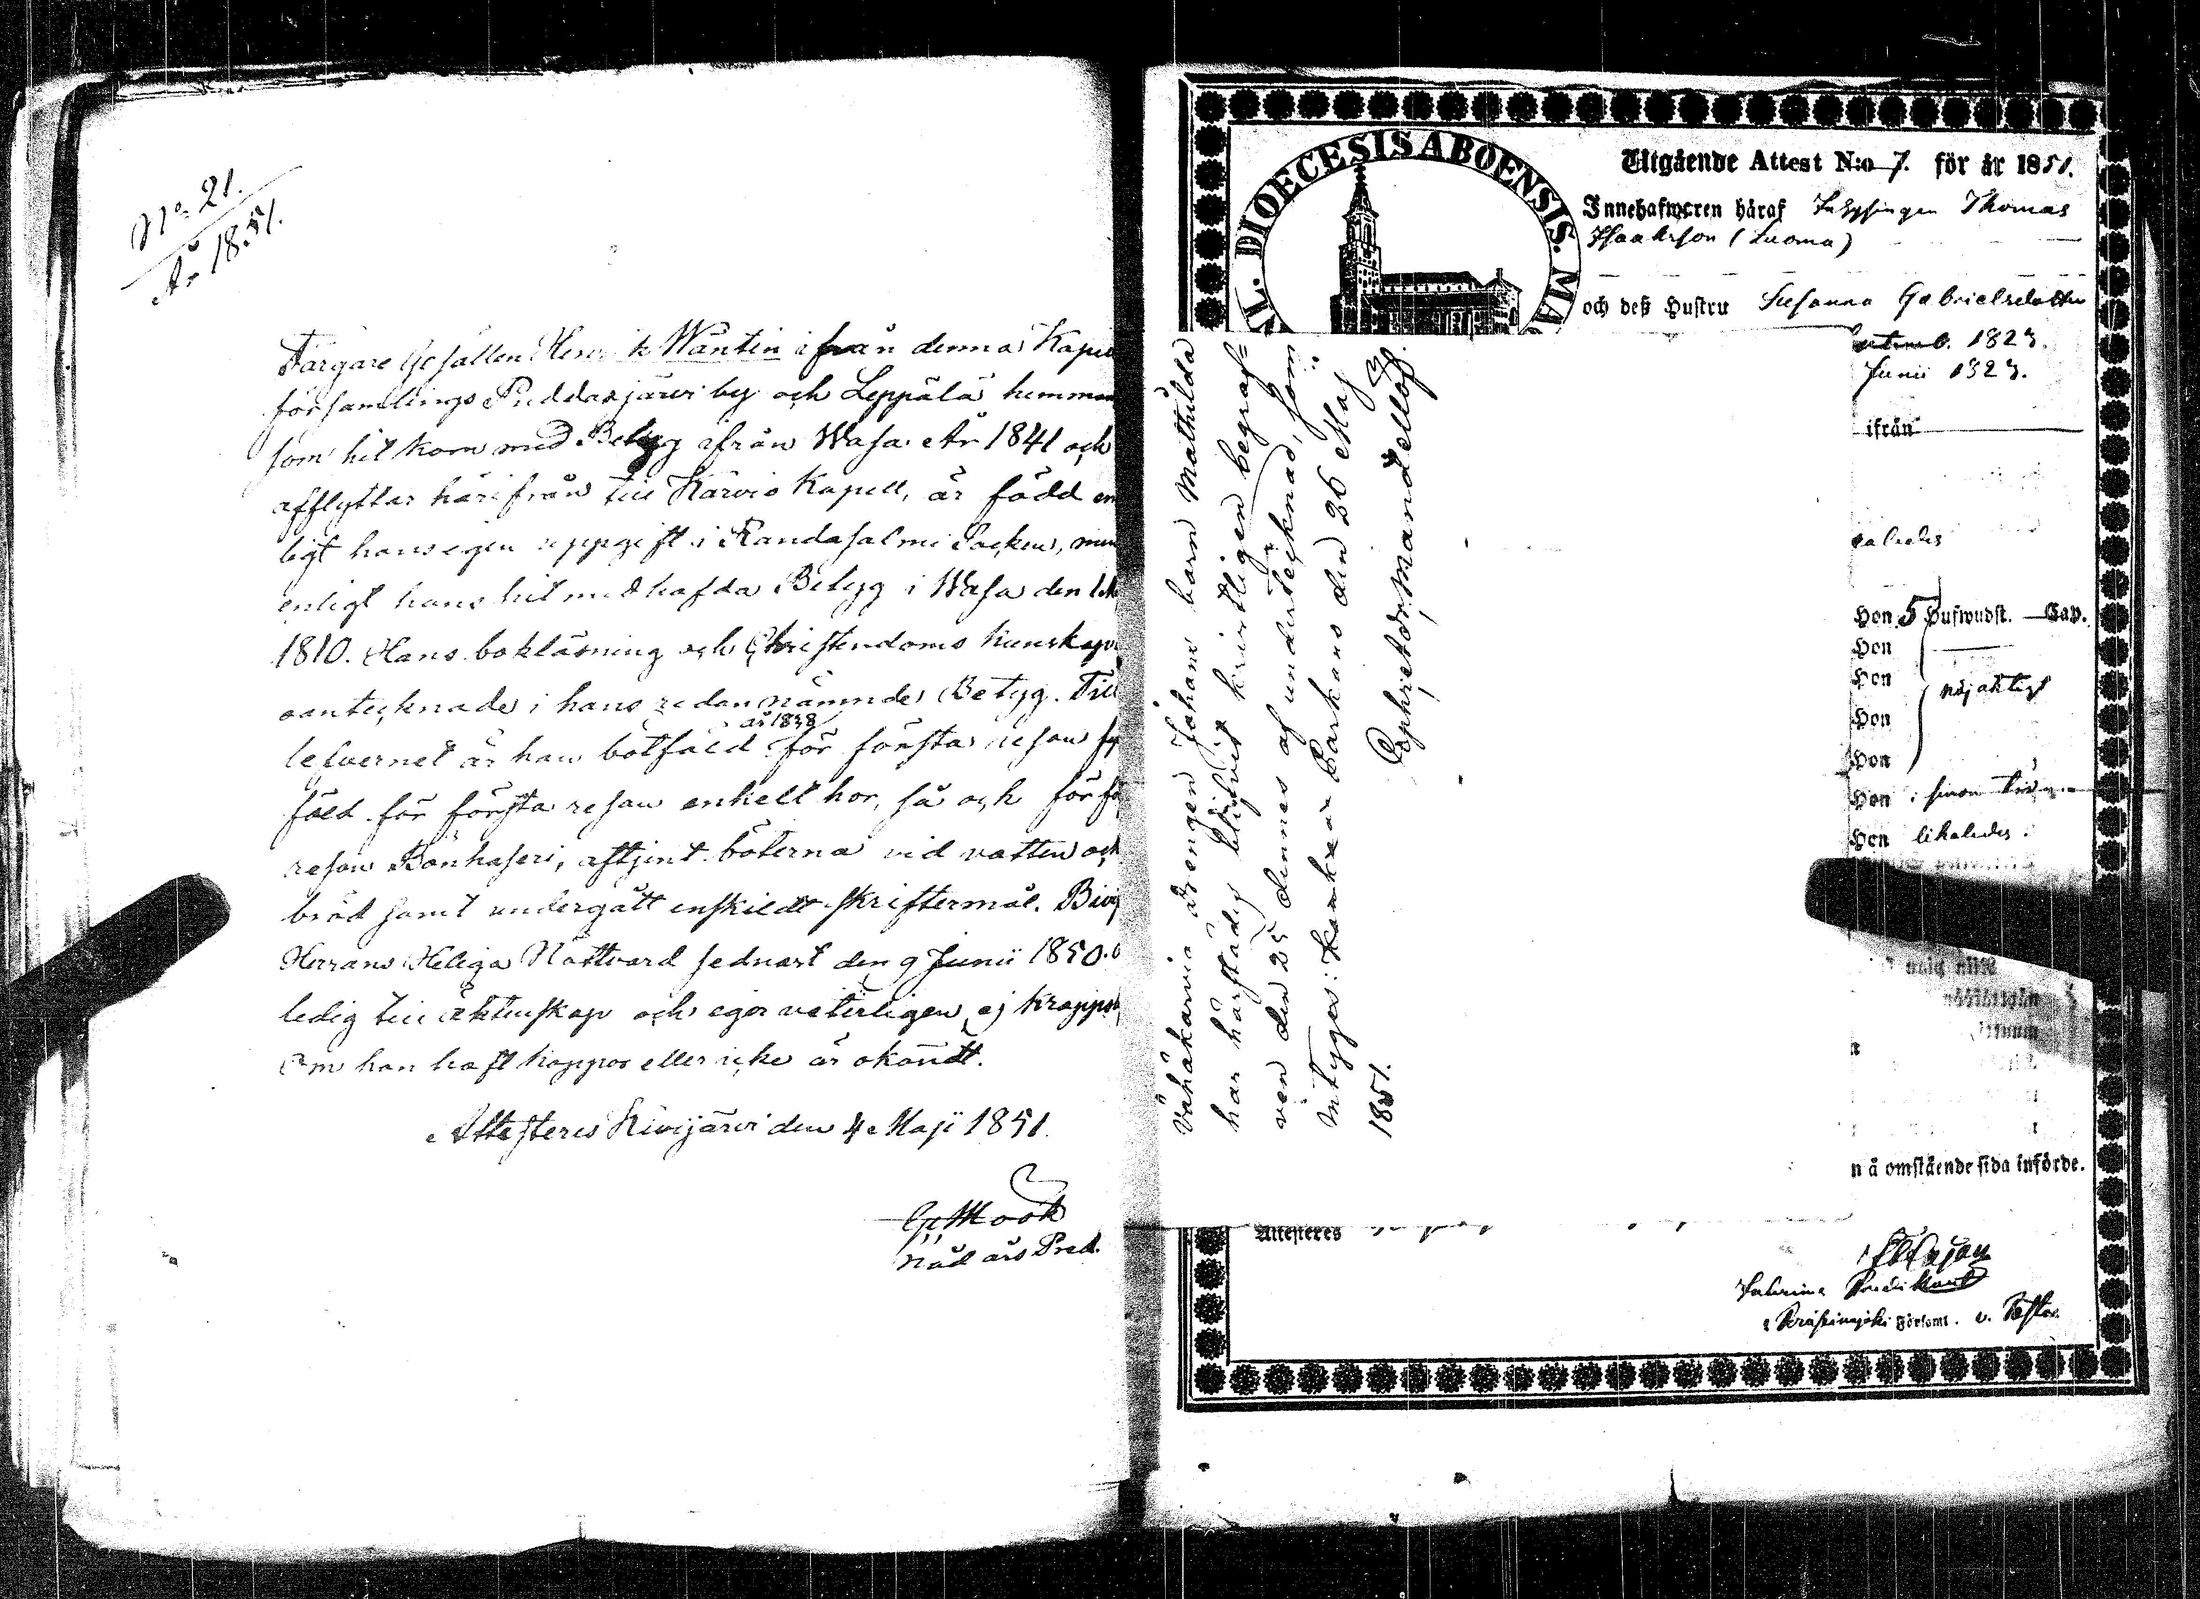 No 21.
År 1851.
Färgare Gesällen Henrik Wäntin ifrån denna Kapell
församlings Puddasjärvi by och Leppälä hemman
som hit kom med Betyg ifrån Wasa År 1841 och
afflyttar härifrån till Karvio Kapell, är född en
ligt hans egen uppgift i Randasalmi Socken, men
enligt hans hit medhafda Betyg i Wasa den
1810. Hans bokläsning och Christendoms kunskap
äro antecknade i hans redan nämnde Betyg. Till
lefvernet är han bötfäld år 1838 för första resan
fäld för första resan enkelt hor, så och för
resan Bönhaseri, aftjent böterna vid vatten och
bröd samt undergått enskildt skriftermål. Bevij
Herrans Heliga Nattvard sednast den 9 Junii 1850.
ledig till äktenskap och eger veterligen ej kroppsl
Om han haft koppor eller icke är okändt.
Attesteres Kivijärvi den 4 Maji 1851.
Mook
Nåd års Pred.
DIOECESIS ABOENSIS. MA
Utgående Attest N:o 7. för år 1851.
Innehafweren häraf Inhysingen Thomas
Isaaksson (Luoma)
och deß Hustru Susanna Gabrielsdotter
1823.
Junii 1823.
ifrån
Hon 5 Huswudst. — Cap.
Hon
Hon nöjaktigt
Hon
Hon
Hon i sinom
Hon likaledes.
n å omstående sida införde.
Attesteres
Predikant
Församl. v. Past.
Vähäkarnia drengen Johans barn Mathilda
har härstädes blifvit kristligen begraf=
ven den 25 dennes af undertecknad, som
intygar: Kankaanpää den 26 Maj
1851. Mandellöf.